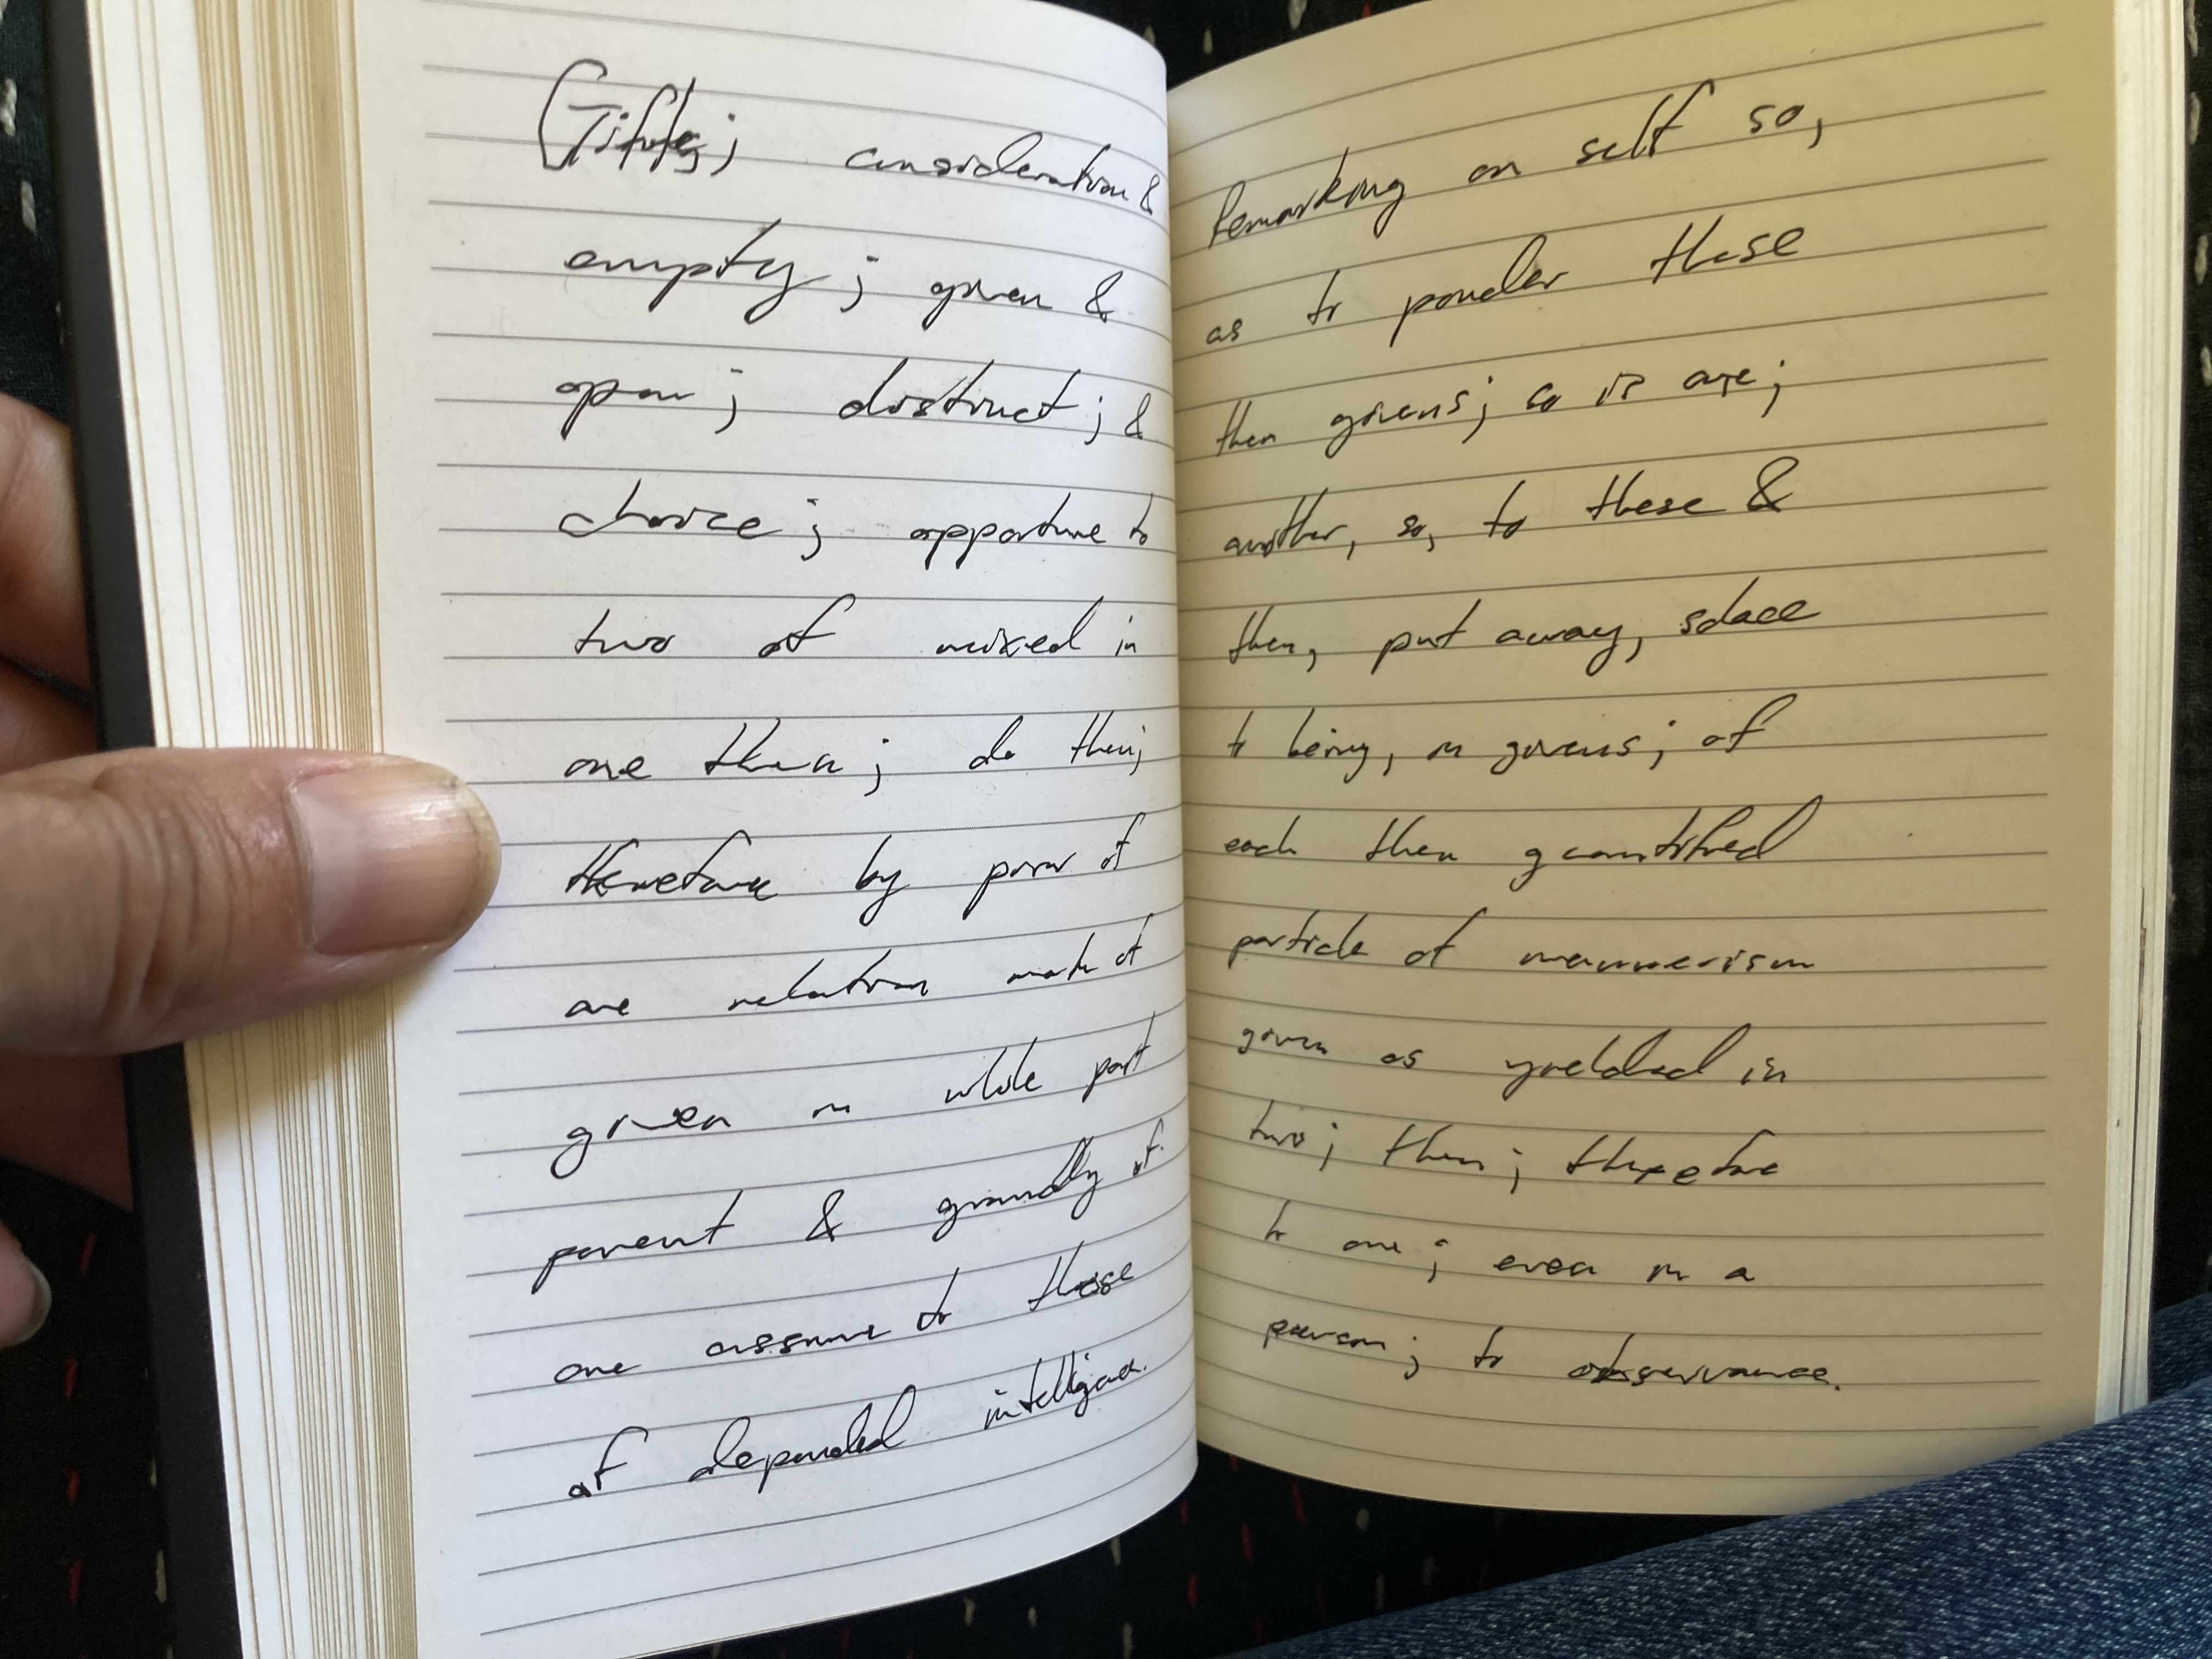 Gifts; consideration &
empty; given &
open; distinct; &
choice; opportune to
two of mixed in
one then; do then;
therefore by power of
are relation made of
given in whole part
parent & grandly of
one assume to those
of depended intelligence.
Remarking on self so,
as to ponder these
then givens; so is are;
another, so, to these &
then, put away, solace
to being, in givens; of
each then quantified
particle of mannerism
given as yielded in
two; then; therefore
to one; even in a
person; to observance.